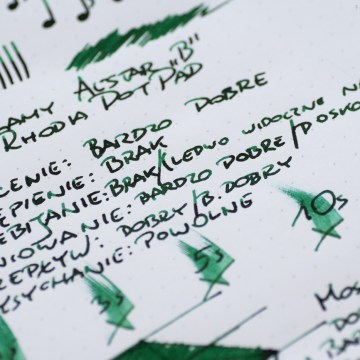 LAMY ALSTAR "B"
RHODIA DOT PAD
CENIE: BARDZO DOBRE
ĘPIENIE: BRAK
EBIJANIE: BRAK/LEDWO WIDOCZNE
NIOWANIE: BARDZO DOBRE/DOSKO
RZEPŁYW: DOBRY/B. DOBRY
YSYCHANIE: POWOLNE
3s 5s 10s